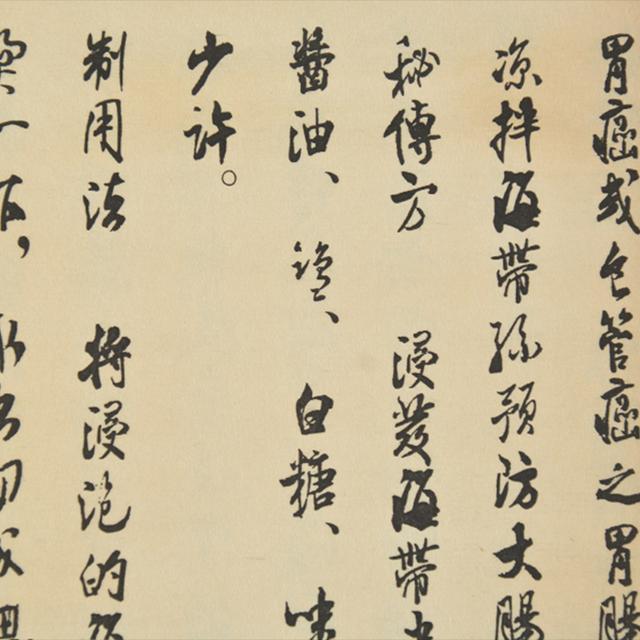 胃癌或食管癌之胃腸
涼拌海帶絲預防大腸
秘傳方　浸發海帶
醬油、鹽、白糖、味
少許。
制用法　將浸泡的海
一下，切成